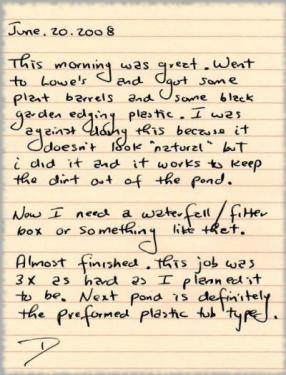 June. 20. 2008
This morning was great. Went
to Lowe's and got some
plant barrels and some black
garden edging plastic. I was
against doing this because it
doesn't look "natural" but
i did it and it works to keep
the dirt out of the pond.
Now I need a waterfall/filter
box or something like that.
Almost finished. this job was
3x as hard as I planned it
to be. Next pond is definitely
the preformed plastic tub type).
D